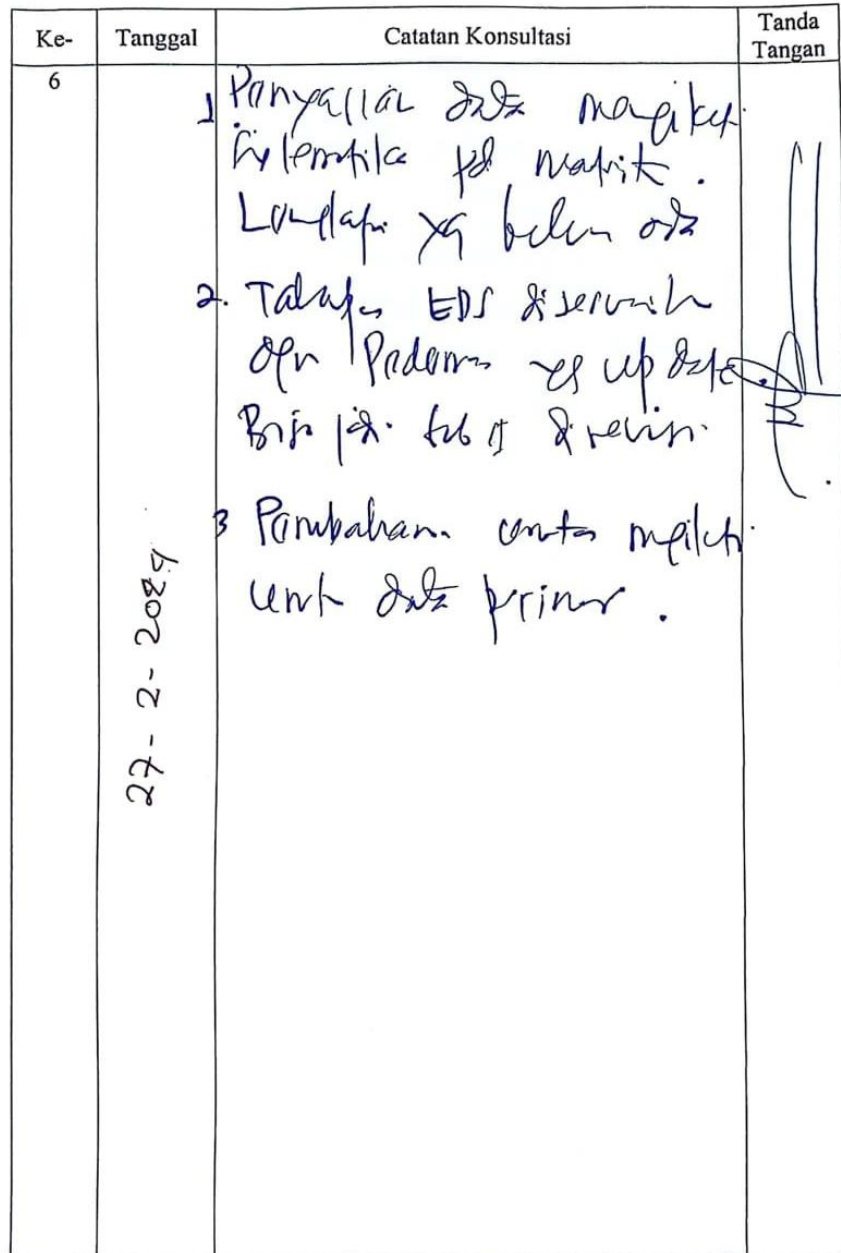 Ke- Tanggal Catatan Konsultasi Tanda Tangan
6
1. Penyajian data mengikuti
sistematika pd matrik.
Lengkapi yg belum ada
2. Tahapan EDS disesuaikan
dgn Pedoman yg update.
Bisa jdi. bab II direvisi.
3 Penambahan
untuk data primer.
27 - 2 - 2024